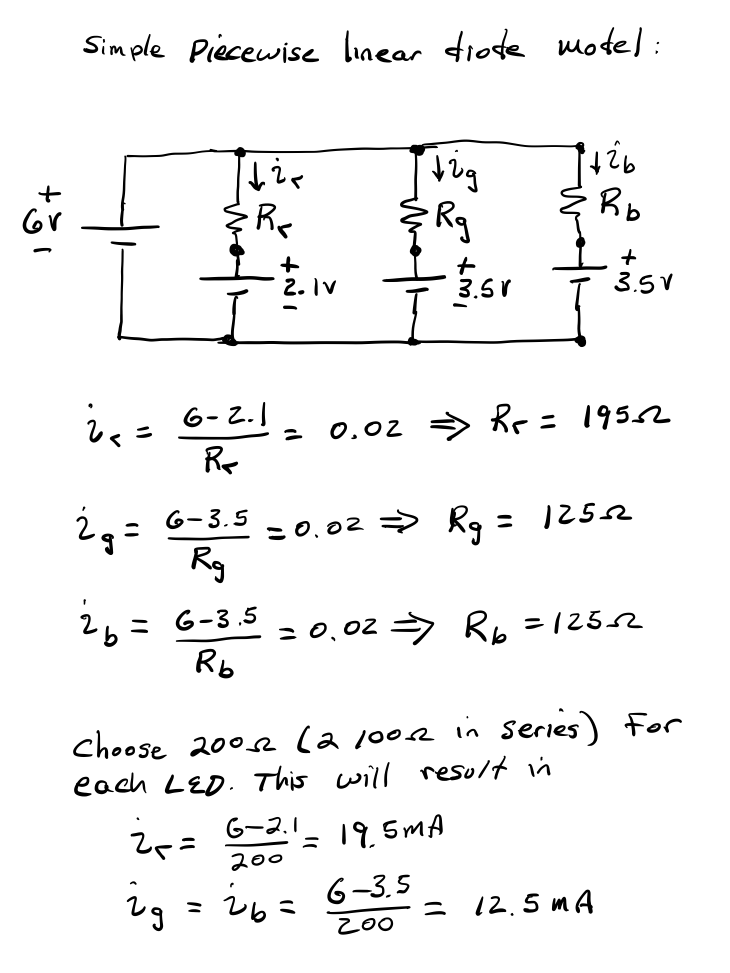 Simple Piecewise linear diode model:
+
6v
-
↓ir
Rr
+
2.1v
-
↓ig
Rg
+
3.5v
-
↓ib
Rb
+
3.5v
ir = (6-2.1)/Rr = 0.02 ⇒ Rr = 195Ω
ig = (6-3.5)/Rg = 0.02 ⇒ Rg = 125Ω
ib = (6-3.5)/Rb = 0.02 ⇒ Rb = 125Ω
Choose 200Ω (2 100Ω in series) For
each LED. This will result in
ir = (6-2.1)/200 = 19.5mA
ig = ib = (6-3.5)/200 = 12.5mA